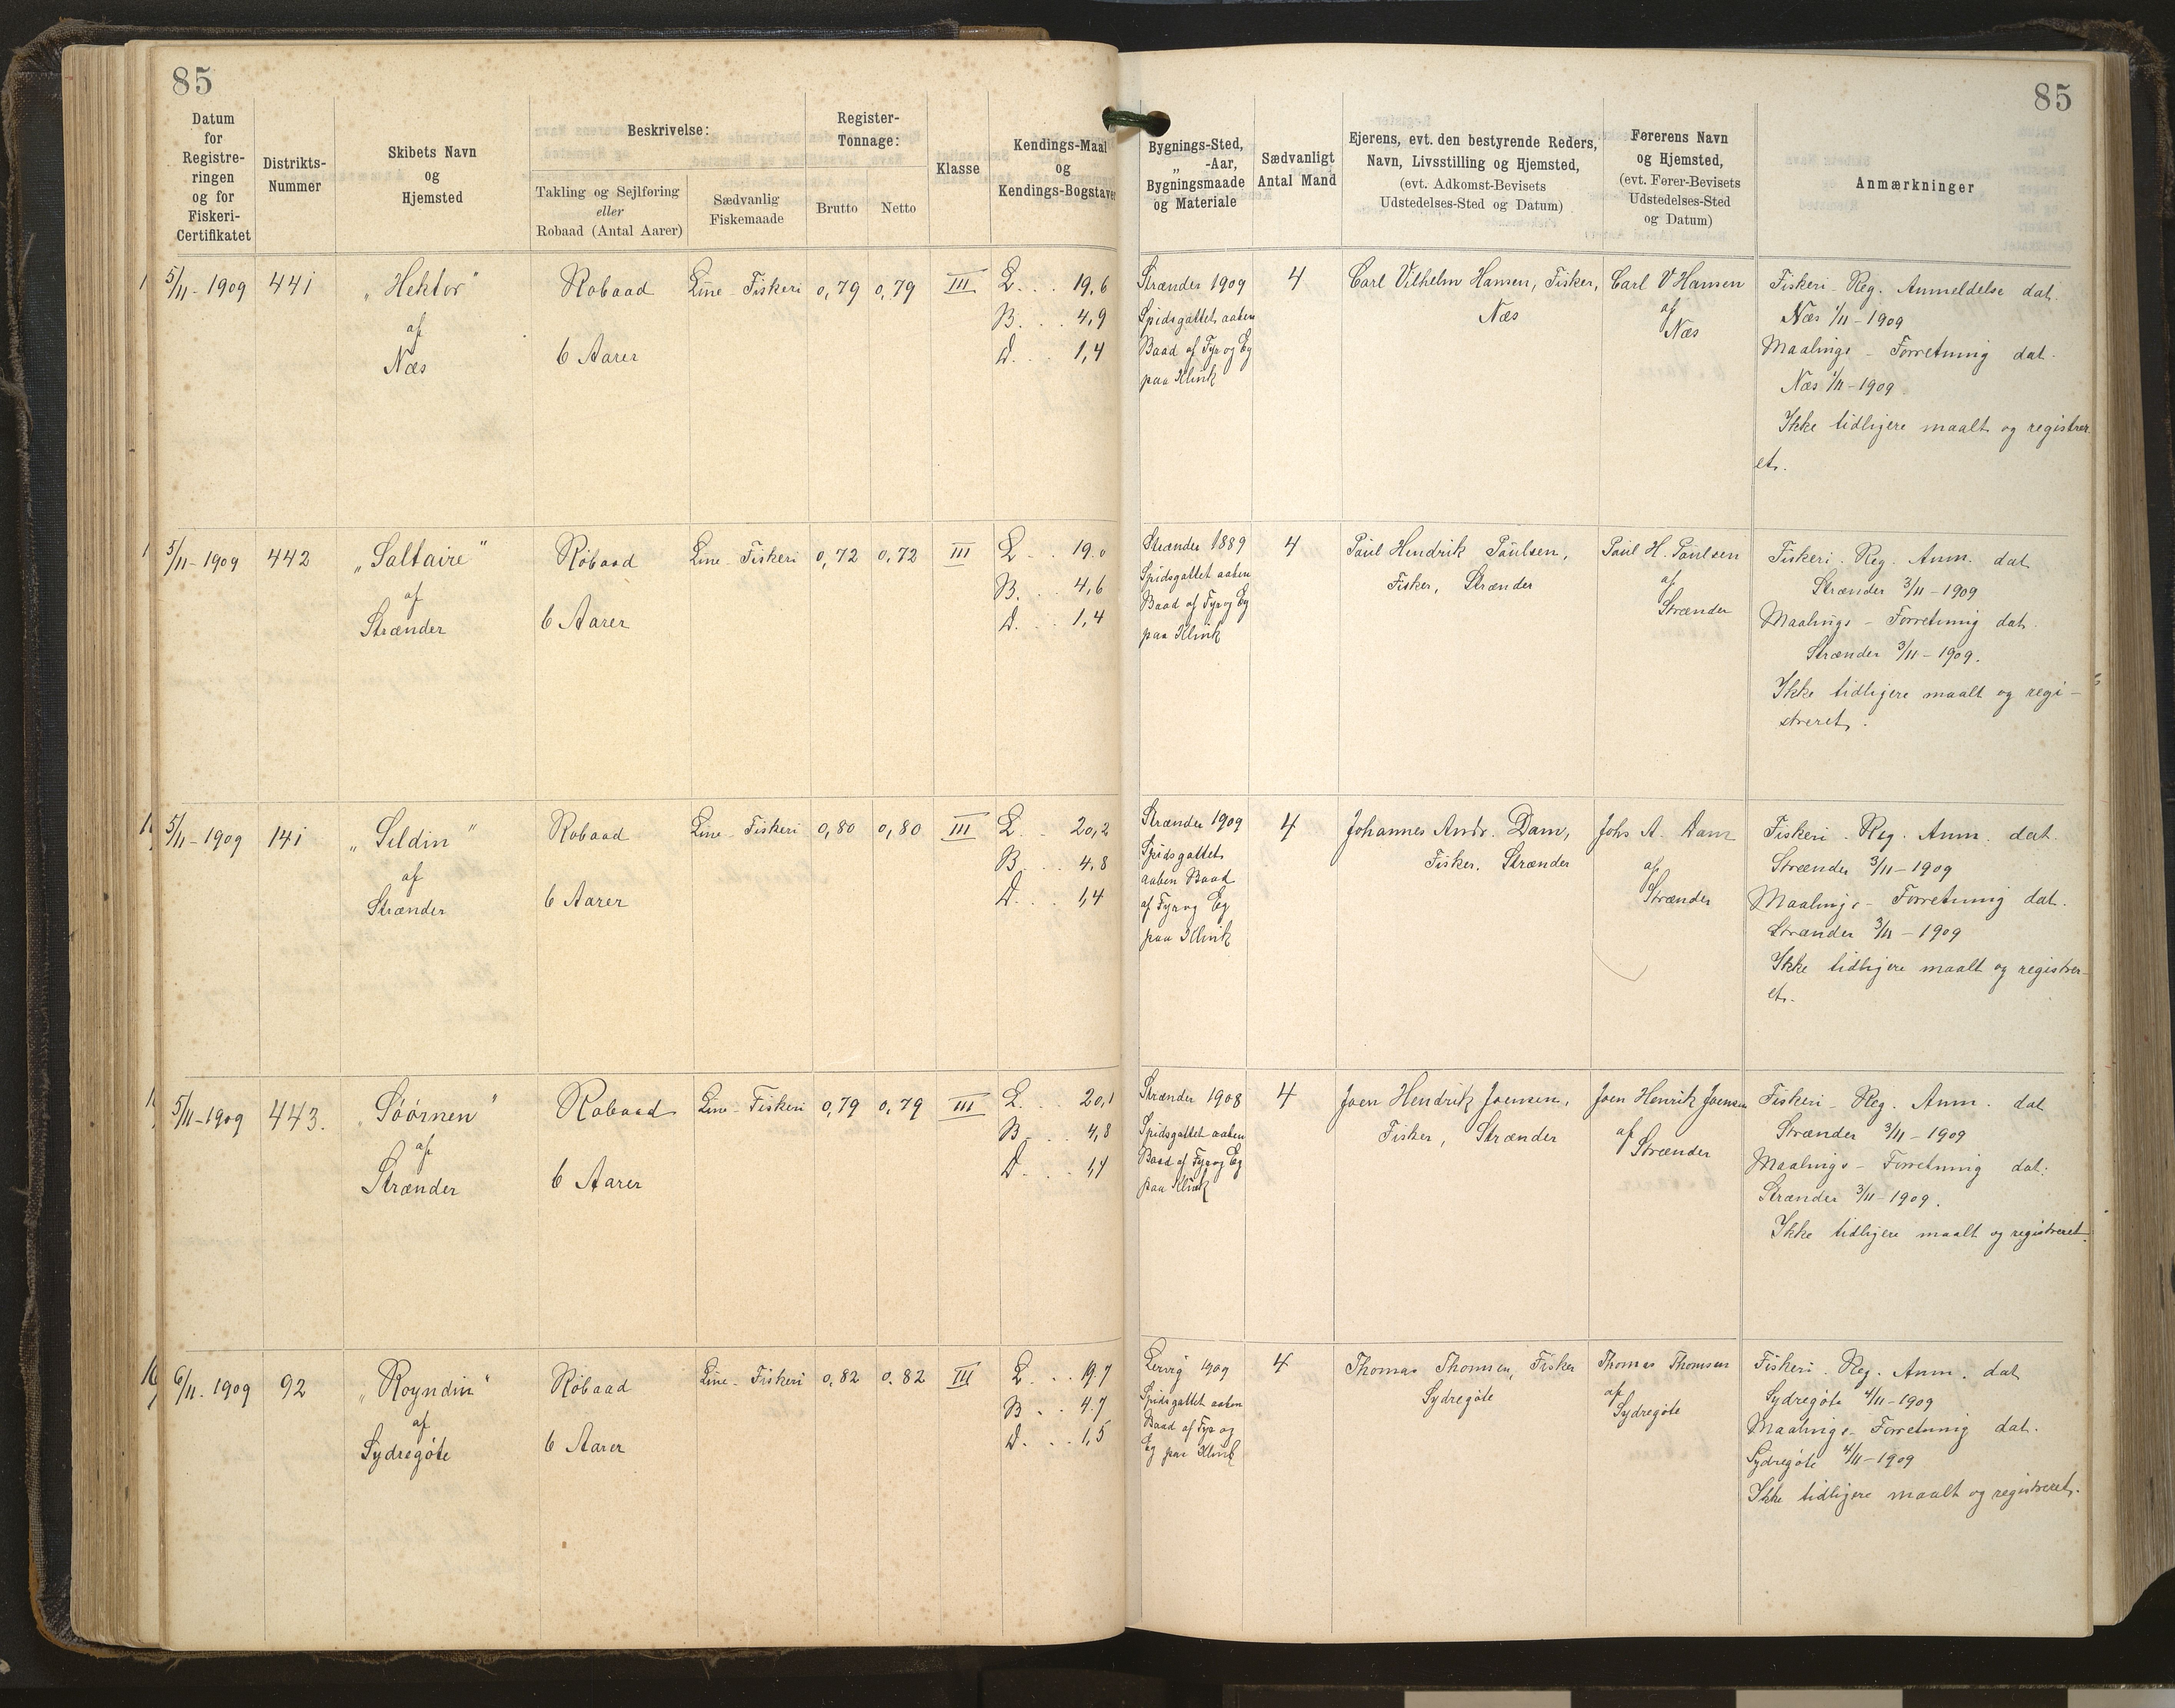 85
85
Datum
for
Registre-
ringen
og for
Fiskeri-
Certifikatet
Distrikts-
Nummer
Skibets Navn
og
Hjemsted
Beskrivelse:
Takling og Sejlføring
eller
Robaad (Antal Aarer)
Sædvanlig
Fiskemaade
Register-
Tonnage:
Brutto
Netto
Klasse
Kendings-Maal
og
Kendings-Bogstaver
Bygnings-Sted,
„ -Aar,
Bygningsmaade
og Materiale
Sædvanligt
Antal Mand
Ejerens, evt. den bestyrende Reders,
Navn, Livsstilling og Hjemsted,
(evt. Adkomst-Bevisets
Udstedelses-Sted og Datum)
Førerens Navn
og Hjemsted,
(evt. Fører-Bevisets
Udstedelses-Sted
og Datum)
Anmærkninger
5/11 - 1909
441
„Hektor"
af
Næs
Robaad
6 Aarer
Line - Fiskeri
0,79
0,79
III
L . . . 19,6
B . . . 4,9
D . . . 1,4
Strænder 1909
Spidsgattet aaben
Baad af Fyr og Eg
paa Klink
4
Carl Vilhelm Hansen, Fisker,
Næs
Carl V Hansen
af
Næs
Fiskeri - Reg. Anmeldelse dat.
Næs 1/11 - 1909
Maalings - Forretning dat.
Næs 1/11 - 1909
Ikke tidligere maalt og registrer
et.
5/11 - 1909
442
„Saltaire"
af
Strænder
Robaad
6 Aarer
Line - Fiskeri
0,72
0,72
III
L . . 19.0
B. . . 4,6
D. . . 1,4
Strænder 1889
Spidsgattet aaben
Baad af Fyr og Eg
paa Klink
4
Paul Hendrik Paulsen,
Fisker, Strænder
Paul H. Paulsen
af
Strænder
Fiskeri - Reg. Anm. dat
Strænder 3/11 - 1909
Maalings - Forretning dat.
Strænder 3/11 - 1909.
Ikke tidligere maalt og regi -
streret.
5/11 - 1909
141
„Sildin"
af
Strænder
Robaad
6 Aarer
Line - Fiskeri
0,80
0,80
III
L . . 20,2
B . . . 4,8
D. . . 1,4
Strænder 1909
Spidsgattet
aaben Baad
af Fyr og Eg
paa Klink
4
Johannes Andr. Dam,
Fisker. Strænder
Johs A. Dam
af
Strænder
Fiskeri - Reg. Anm. dat.
Strænder 3/11 - 1909
Maalings - Forretning dat.
Strænder 3/11 - 1909
Ikke tidligere maalt og registrer-
et.
5/11 - 1909
443.
„Søørnen"
af
Strænder
Robaad
6 Aarer
Line - Fiskeri
0,79
0,79
III
L. . . 20,1
B . . . 4,8
D. . . 1,4
Strænder 1908
Spidsgattet aaben
Baad af Fyr og Eg
paa Klink
4
Joen Hendrik Joensen,
Fisker, Strænder
Joen Henrik Joensen
af
Strænder
Fiskeri - Reg. Anm. dat
Strænder 3/11 - 1909
Maalings - Forretning dat.
Strænder 3/11 - 1909.
Ikke tidligere maalt og registreret.
6/11. 1909
92
„Royndin"
af
Sydregøte
Robaad
6 Aarer
Line - Fiskeri
0,82
0.82
III
L . . . 19.7
B . . 4.7
D. . . 1,5
Lervig 1909
Spidsgattet aaben
Baad af Fyr og
Eg paa Klink
4
Thomas Thomsen, Fisker
Sydregøte
Thomas Thomsen
af
Sydregøte
Fiskeri - Reg. Anm. dat
Sydregøte 4/11 - 1909
Maalings - Forretning dat.
Sydregøte 4/11 - 1909
Ikke tidligere maalt og registreret.